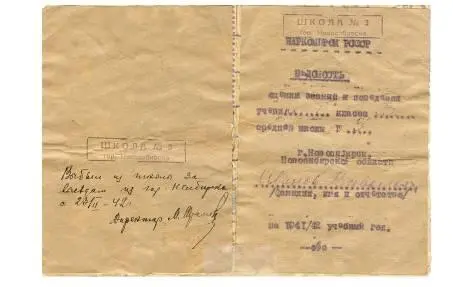 ШКОЛА № 3
гор. Новосибирска
Выбыл из школы за
выездом из гор. Н-сибирска
28/II - 42 г.
Директор М.
ШКОЛА № 3
гор. Новосибирска
НАРКОМПРОС РСФСР
ВЕДОМОСТЬ
оценки знаний и поведения
класса
средней школы №
г. Новосибирск
Новосибирской области
/фамилия, имя и отчество/
на 1941/42 учебный год.